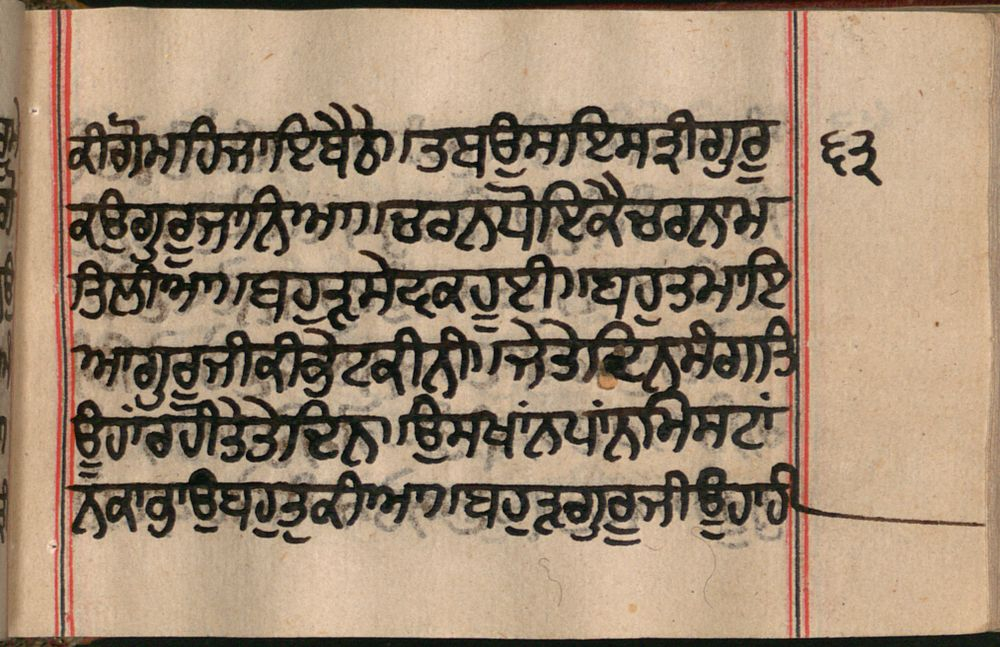 ਕੀਗੋਮਹਿਜਾਇਬੈਠੇ।ਤਬਉਸਇਸਤ੍ਰੀਗੁਰੂ ੬੩
ਕਉਗੁਰੂਜਾਨਿਆ॥ਚਰਨਧੋਇਕੈਚਰਨਾਮ
ਤਿਲੀਆ॥ਬਹੁਤੁਸੇਵਕਹੂਈ॥ਬਹੁਤਮਾਇ
ਆਗੁਰੂਜੀਕੀਭੇਟਕੀਨੀ।ਜੇਤੇਦਿਨਸੰਗਤਿ
ਊਹਾਂਰਹੀਤੇਤੇਦਿਨ।ਉਸਖਾਂਨਪਾਂਨਮਿਸਟਾਂ
ਨਕਾਭਾਉਬਹੁਤੁਕੀਆ॥ਬਹੁੜਗੁਰੂਜੀਊਹਾਹੀ